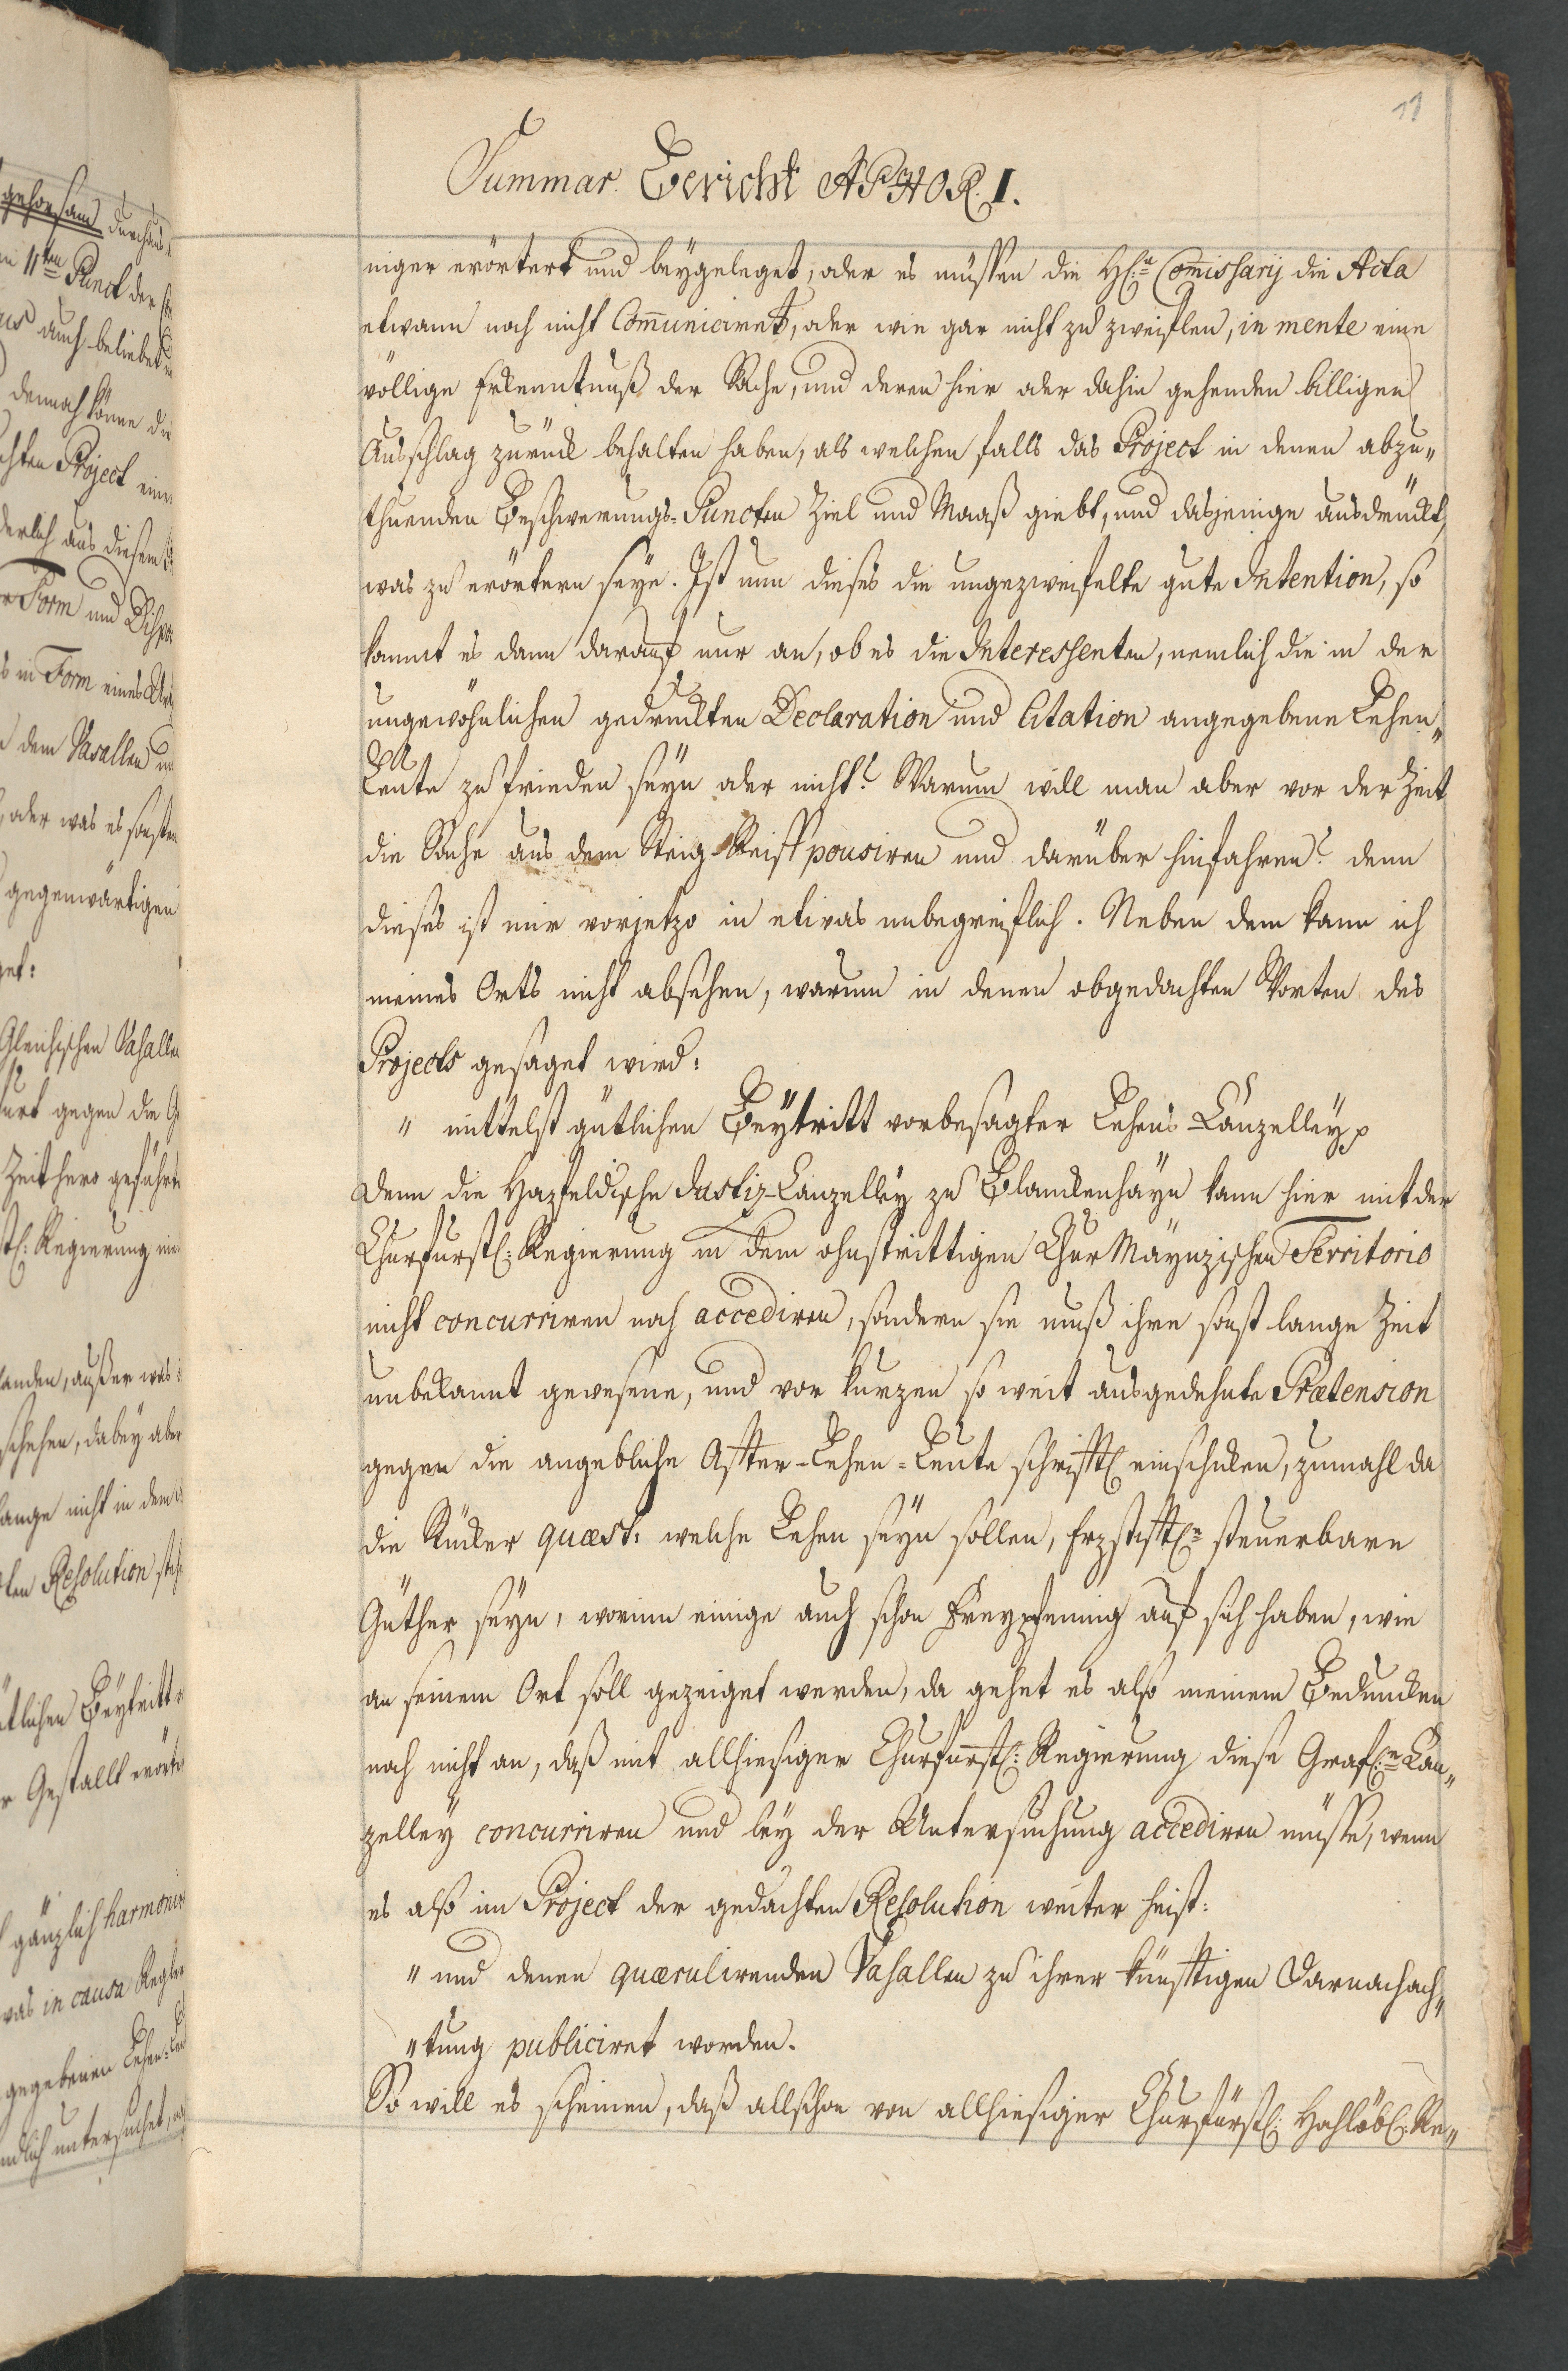 11
Summar. Bericht APHOR. I.
niger erörtert und beygeleget, oder es müssen die H[e]: Com̄issarij die Acta
etwann noch nicht Com̄uniciret, oder wie gar nicht zu zweiflen, in mente eine
völlige Erkenntnuß der Sache, und deren hier oder dahin gehenden billigen
Ausschlag zurück behalten haben, als welchen falls das Project in denen abzu„
thuenden Beschwerungs-Puncten Ziel und Maaß giebt, und dasjenige ausdruckt,
was zu erörtern seye. Ist nun dieses die ungezweifelte gute Intention, so
kommt es dann darauf nur an, ob es die Interessenten, nemlich die in der
ungewöhnlichen gedruckten Declaration und Citation angegebene Lehen„
Leute zufrieden seyn oder nicht? Warum will man aber vor der Zeit
die Sache aus dem Steig-Reiff pousiren und darüber hinfahren? denn
dieses ist mir vorjetzo in etwas unbegreiflich. Neben dem kann ich
meines Orts nicht absehen, warum in denen obgedachten Worten des
Projects gesaget wird:
„ mittelst gütlichen Beytritt vorbesagter Lehens-Canzelley p
Denn die Hazfeldische Justiz-Canzelley zu Blanckenhayn kann hier mit der
Churfürstl: Regierung in dem ohnstrittigen Chur Maynzischen Territorio
nicht concurriren noch accediren, sondern sie muß ihre sonst lange Zeit
unbekannt gewesene, und vor kurzen so weit ausgedehnte Prætension
gegen die angebliche Affter-Lehen-Leute schrifftl einschicken, zumahl da
die Stücker quæst: welche Lehen seyn sollen, Erzstifftl: steuerbare
Güther seyn, worinn einige auch schon Freypfennig auf sich haben, wie
an seinem Ort soll gezeiget werden, da gehet es also meinem Beduncken
noch nicht an, daß mit allhiesiger Churfürstl: Regierung diese Gräfl: Can„
zelley concurriren und bey der Untersuchung accediren müsse, wenn
es alß im Project der gedachten Resolution weiter heist:
„ und denen quærulirenden Vasallen zu ihrer künfftigen Darnachach„
„tung publiciret worden.
So will es scheinen, daß allschon von allhiesiger Churfürstl: Hochlöbl: Re„